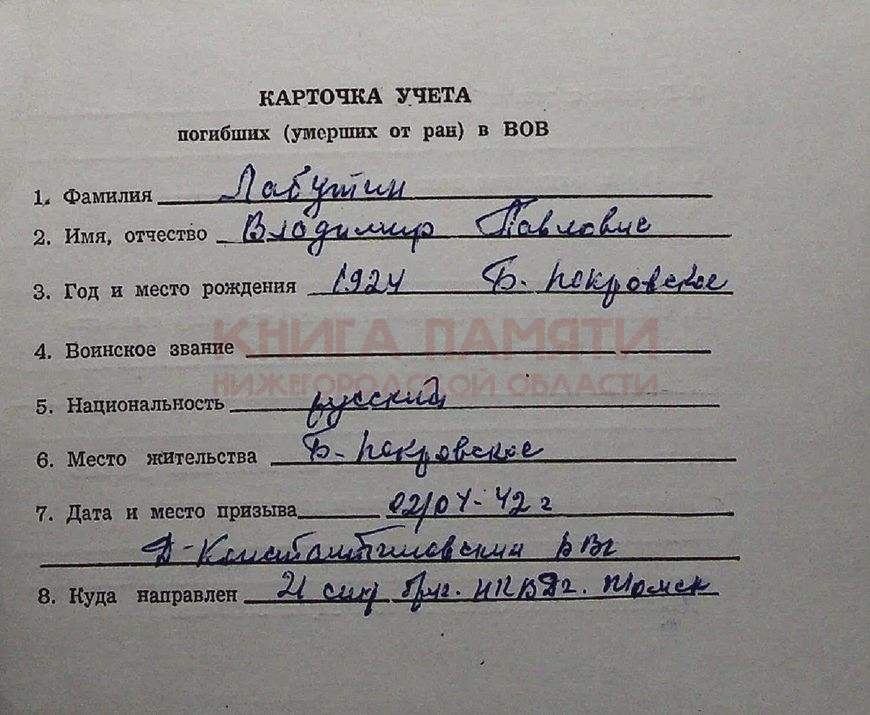 КАРТОЧКА УЧЕТА
погибших (умерших от ран) в ВОВ
1. Фамилия Лабутин
2. Имя, отчество Владимир Павлович
3. Год и место рождения 1924 Б. Покровское
КНИГА ПАМЯТИ
4. Воинское звание
НИЖЕГОРОДСКОЙ ОБЛАСТИ
5. Национальность русский
6. Место жительства Б-Покровское
7. Дата и место призыва 02/04-42 г
Д-Константиновский РВК
8. Куда направлен 21 НКВД г. Томск